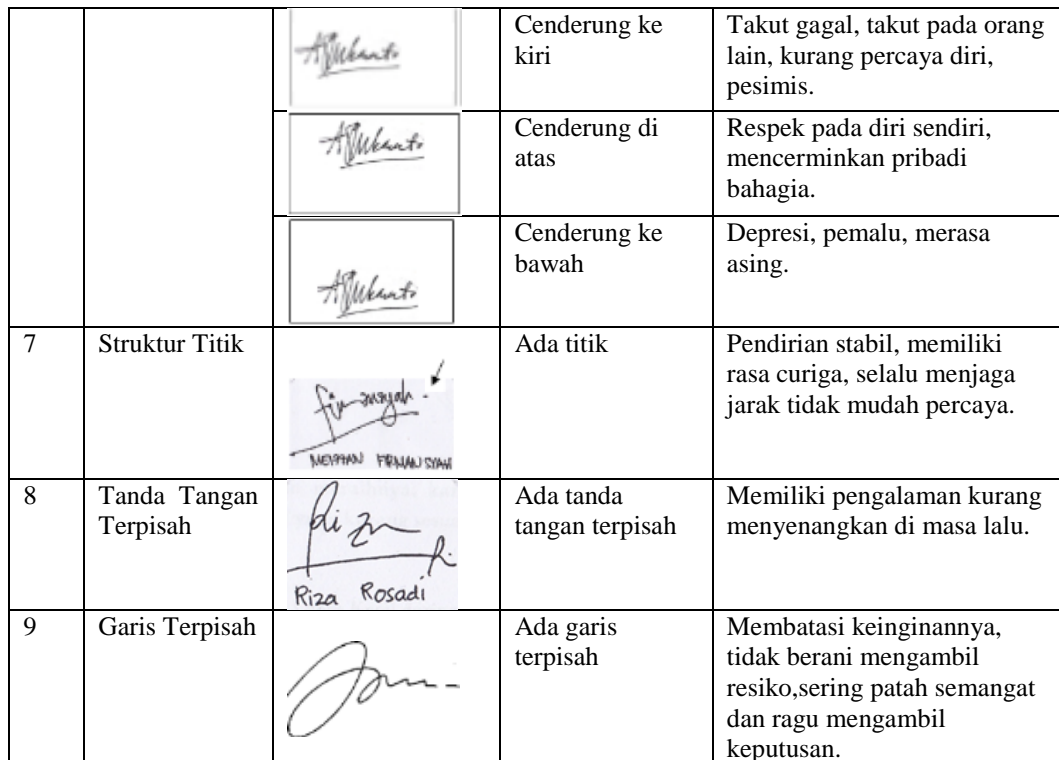 Cenderung ke
kiri
Takut gagal, takut pada orang
lain, kurang percaya diri,
pesimis.
Cenderung di
atas
Respek pada diri sendiri,
mencerminkan pribadi
bahagia.
Cenderung ke
bawah
Depresi, pemalu, merasa
asing.
7
Struktur Titik
Ada titik
Pendirian stabil, memiliki
rasa curiga, selalu menjaga
jarak tidak mudah percaya.
8
Tanda Tangan
Terpisah
Riza Rosadi
Ada tanda
tangan terpisah
Memiliki pengalaman kurang
menyenangkan di masa lalu.
9
Garis Terpisah
Ada garis
terpisah
Membatasi keinginannya,
tidak berani mengambil
resiko,sering patah semangat
dan ragu mengambil
keputusan.